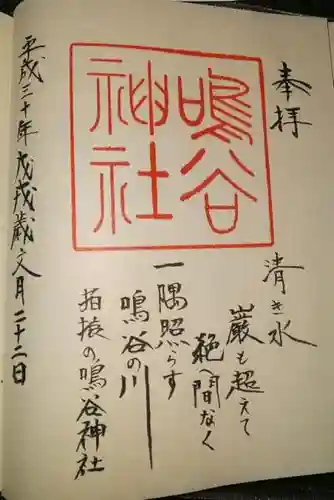 奉拝
鳴谷
神社
清き水
巌も超えて
絶へ間なく
一隅照らす
鳴谷の川
招猿の鳴谷神社
平成三十年戊戌歳文月二十二日